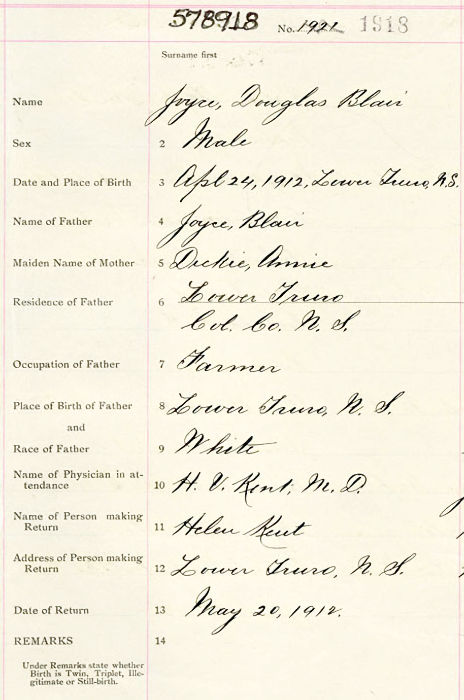 578918 No. 1921 1918
Surname first
Name Joyce, Douglas Blair
Sex 2 Male
Date and Place of Birth 3 Apl 24, 1912, Lower Truro, N.S.
Name of Father 4 Joyce, Blair
Maiden Name of Mother 5 Dickie, Annie
Residence of Father 6 Lower Truro
Col. Co. N. S.
Occupation of Father 7 Farmer
Place of Birth of Father 8 Lower Truro, N. S.
and
Race of Father 9 White
Name of Physician in at-
tendance 10 H. V. Kent, M. D.
Name of Person making
Return 11 Helen Kent
Address of Person making
Return 12 Lower Truro, N. S.
Date of Return 13 May 20, 1912.
REMARKS 14
Under Remarks state whether
Birth is Twin, Triplet, Ille-
gitimate or Still-birth.